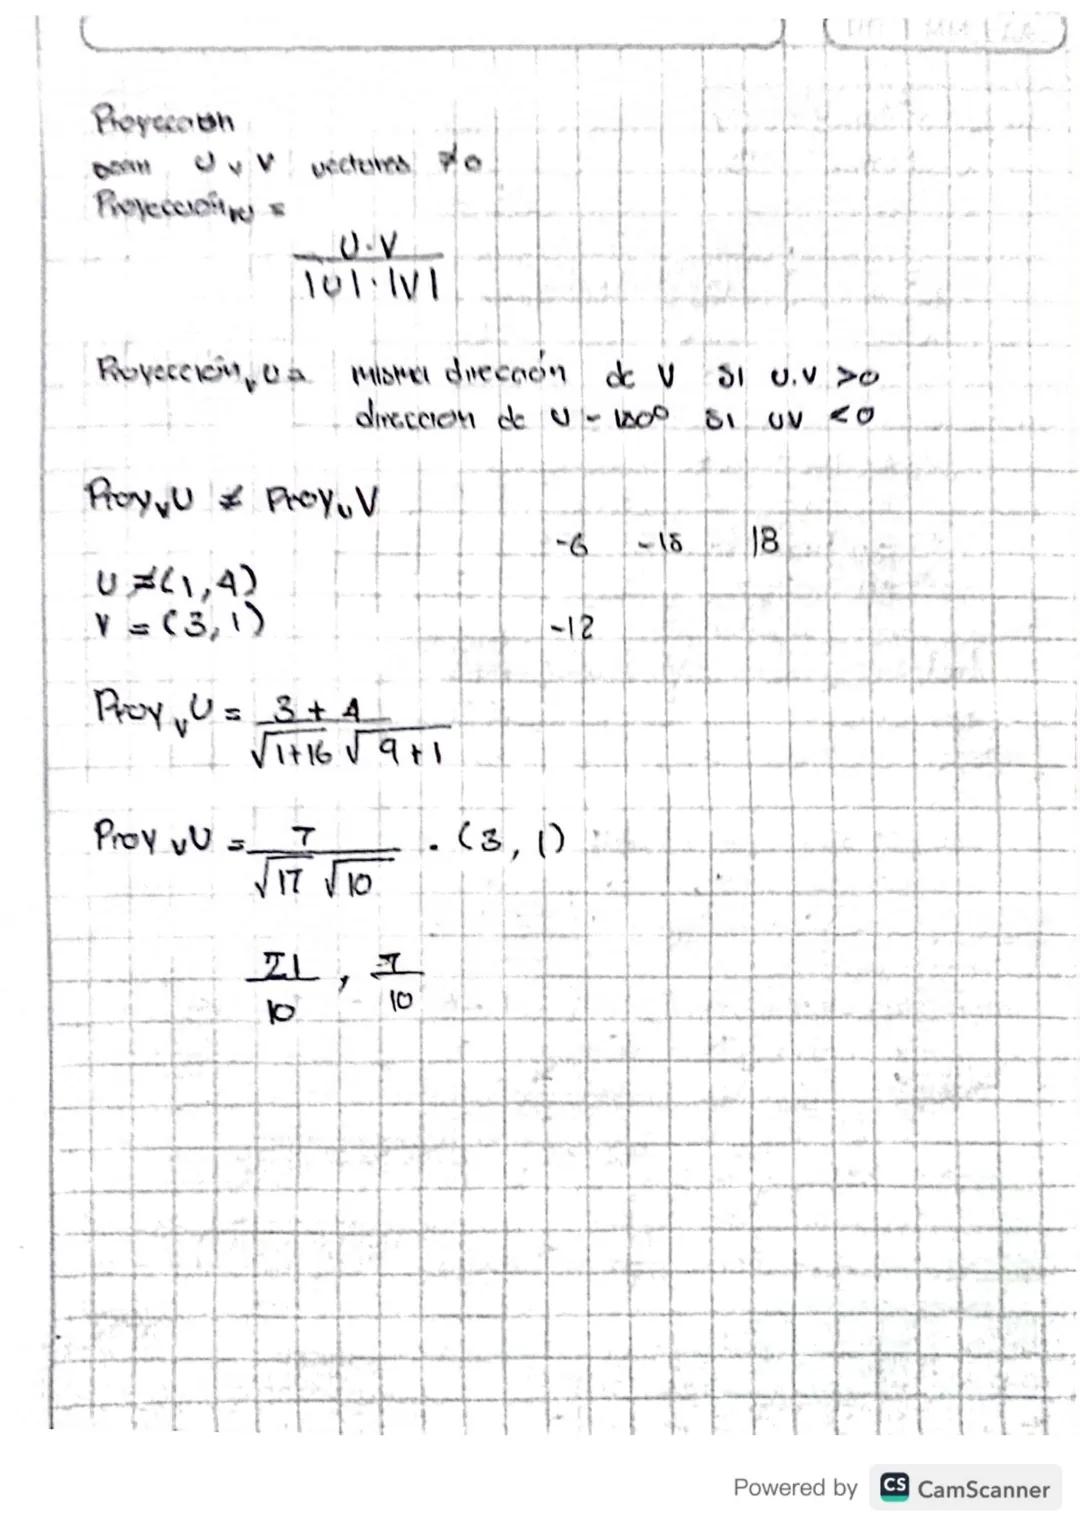 Proyección
sean U y V vectores ≠0
Proyección =
U·V
|U|·|V|
Proyección v U = misma dirección de V si U.V >0
dirección de U - 180° si UV <0
Proy v U ≠ Proy u V
-6 -18 18
U = (1,4)
V = (3,1)
-12
Proy v U = 3+4
√1+16 √9+1
Proy v U = 7 . (3,1)
√17 √10
21 , 7
10 10
Powered by CS CamScanner